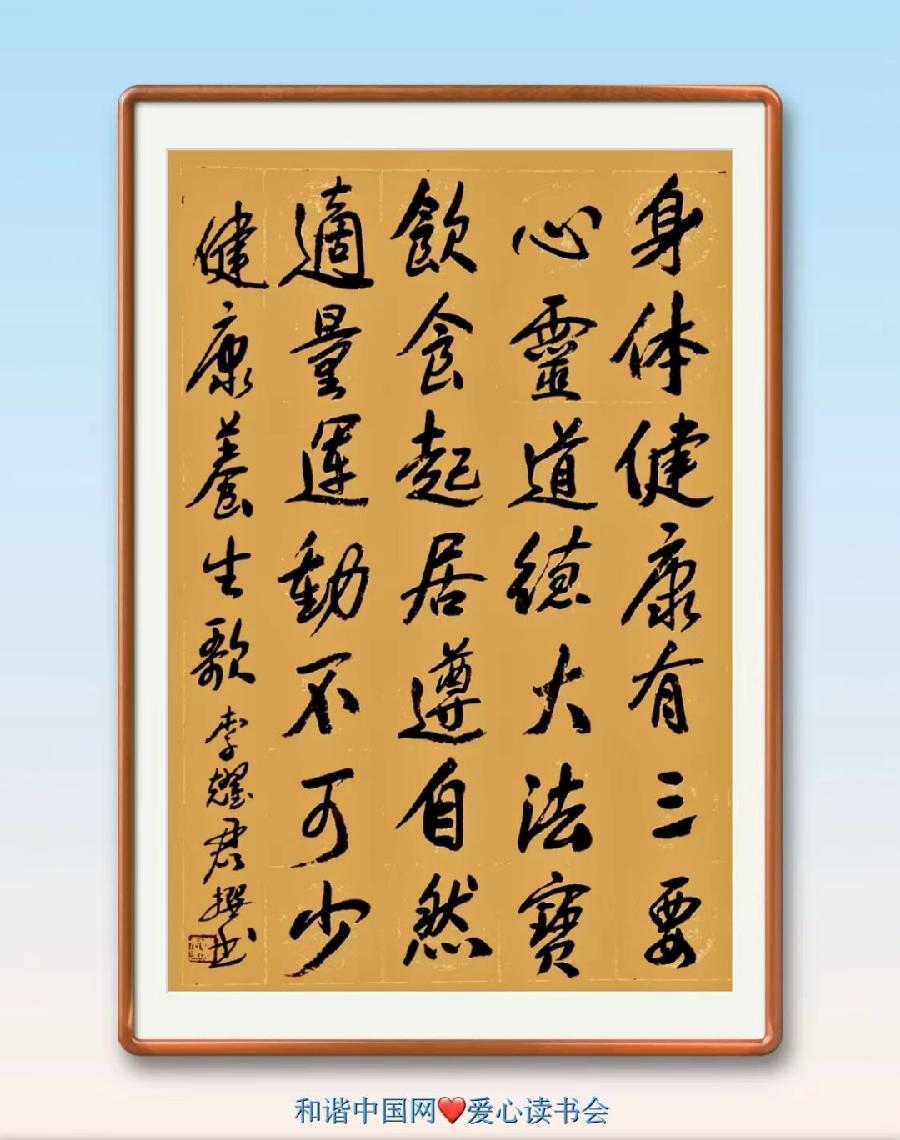 身体健康有三要
心靈道德大法寶
飲食起居遵自然
適量運動不可少
健康養生歌 李耀君撰书
和谐中国网❤️爱心读书会